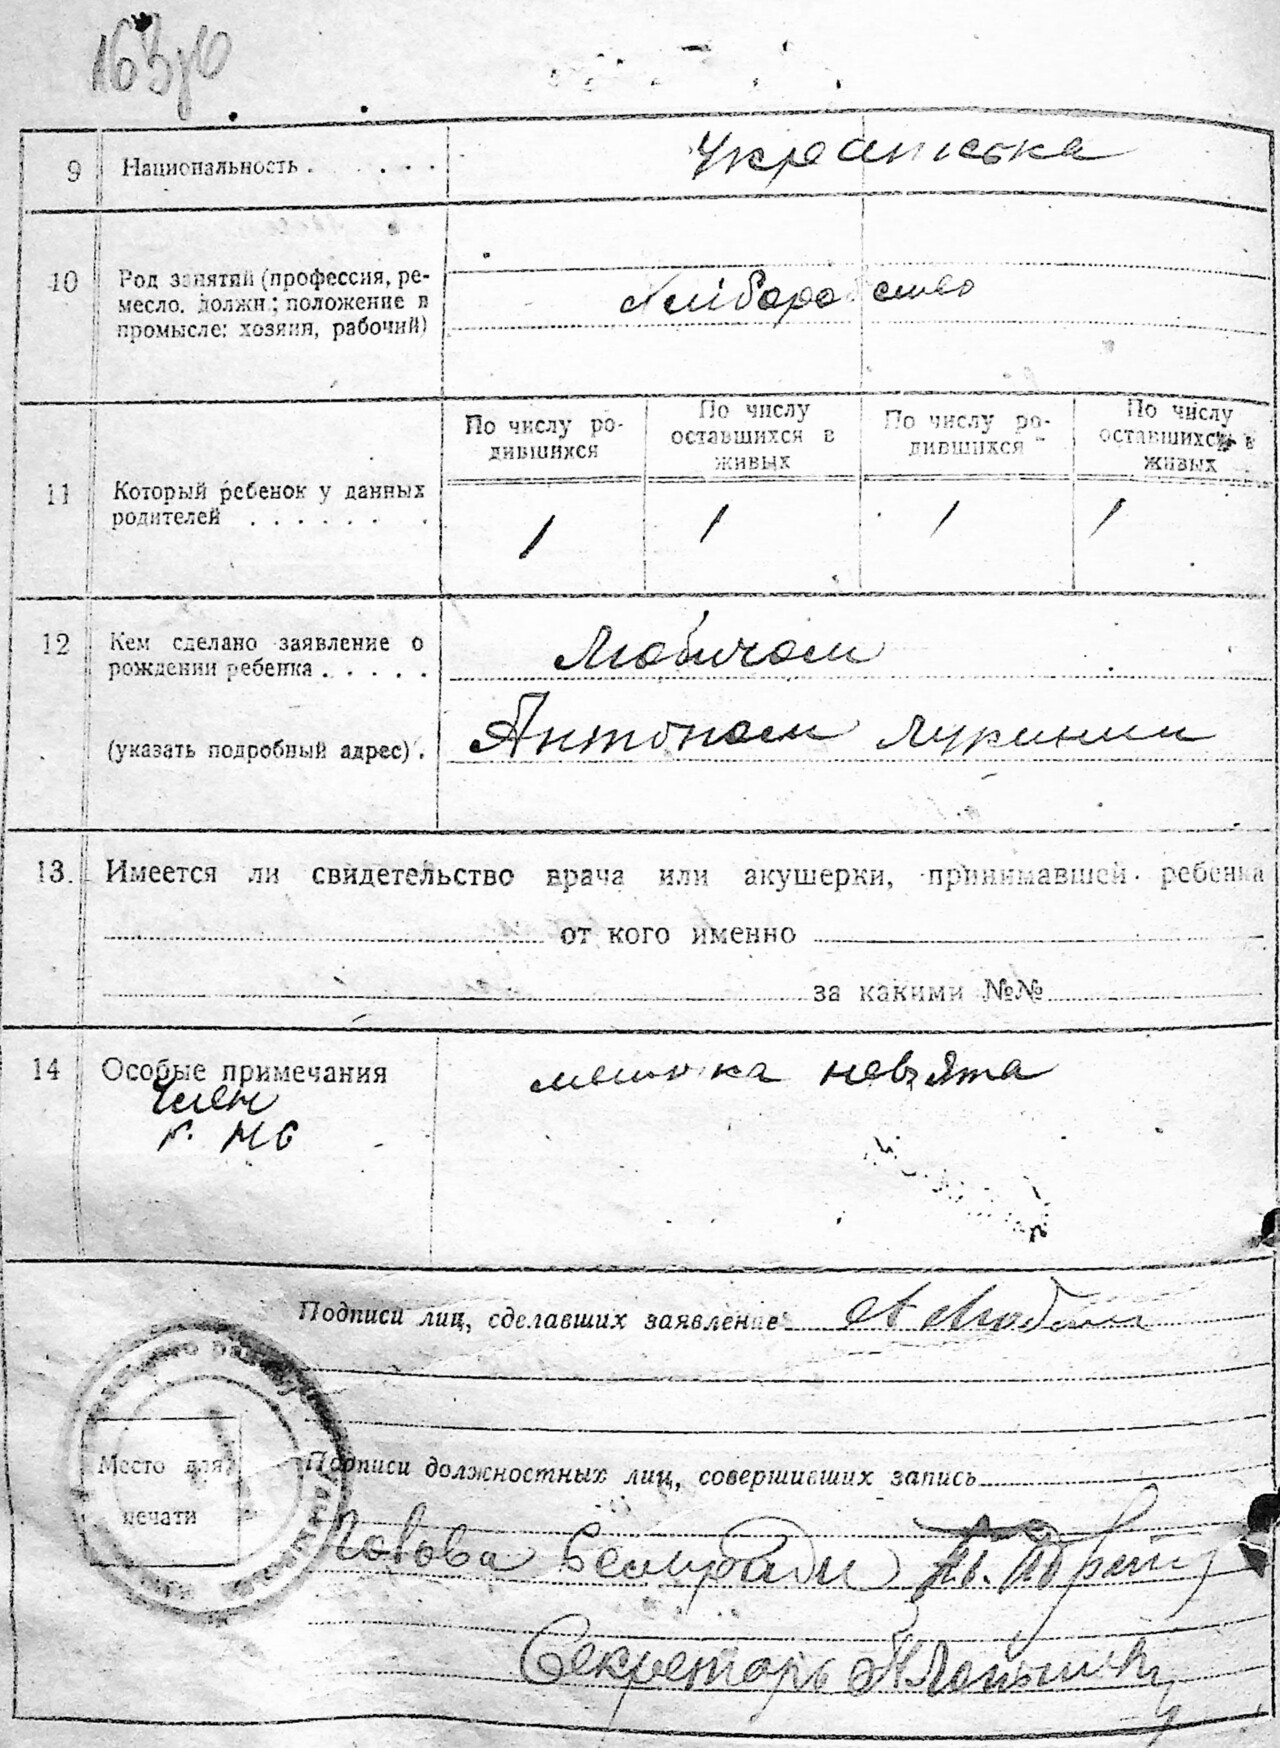 9 Национальность . . . . . Українська
10 Род занятий (профессия, ре-
месло, должн.; положение в
промысле: хозяин, рабочий)
Хліборобство
11 Который ребенок у данных
родителей . . . . . .
По числу ро-
дившихся
По числу
оставшихся в
живых
По числу ро-
дившихся
По числу
оставшихся в
живых
1 1 1 1
12 Кем сделано заявление о
рождении ребенка . . . . .
(указать подробный адрес) .
Любичом
Антоном
13. Имеется ли свидетельство врача или акушерки, принимавшей ребенка
от кого именно
за какими №№
14 Особые примечания
Член
метрика невзята
Подписи лиц, сделавших заявление
Место для
печати
Подписи должностных лиц, совершивших запись
Голова Сельради
Секретарь